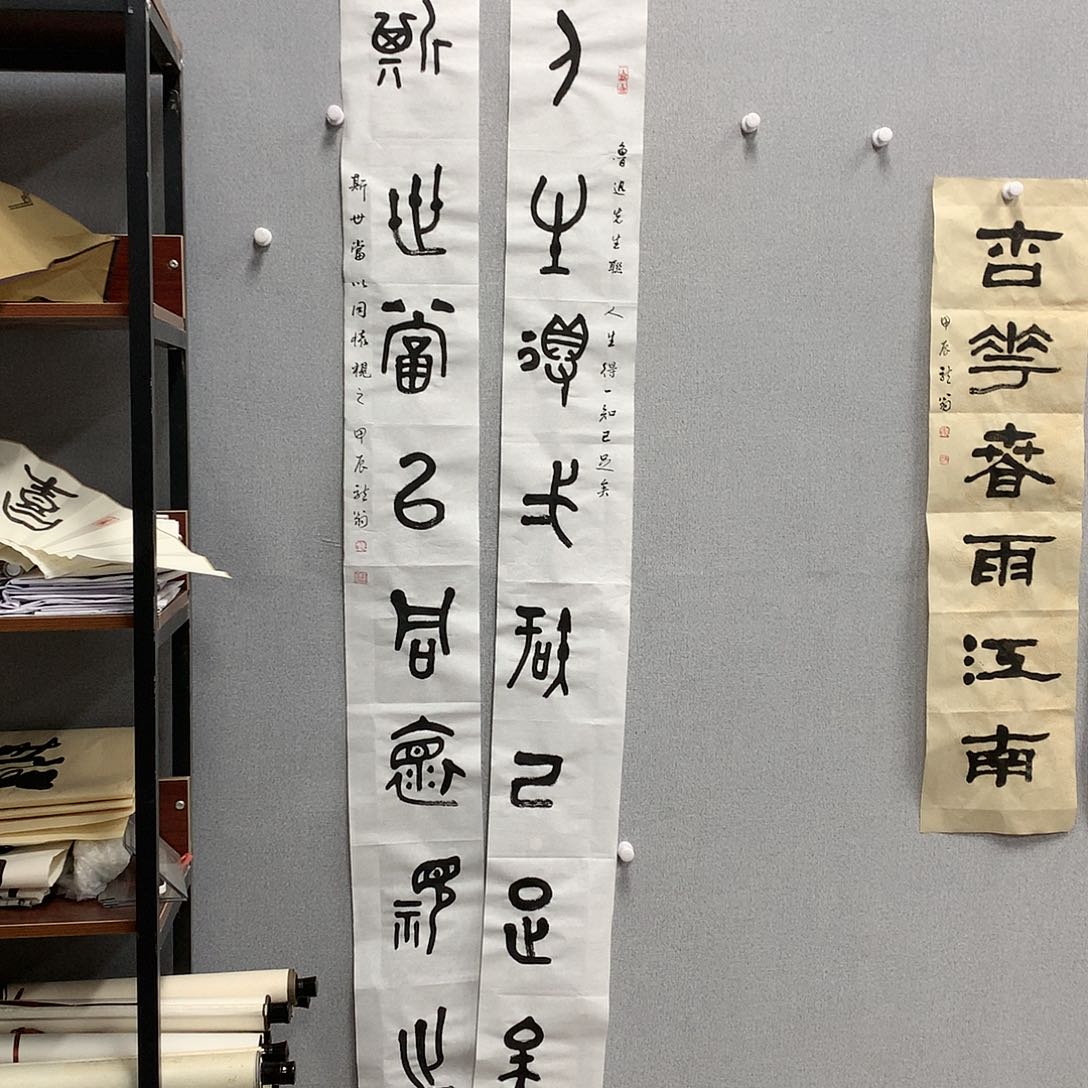 杏華春雨江南
甲辰
魯迅先生聯 人生得一知己足矣
人生得弌知己足矣
斯世當以同懷視之
斯世當以同懷視之 甲辰